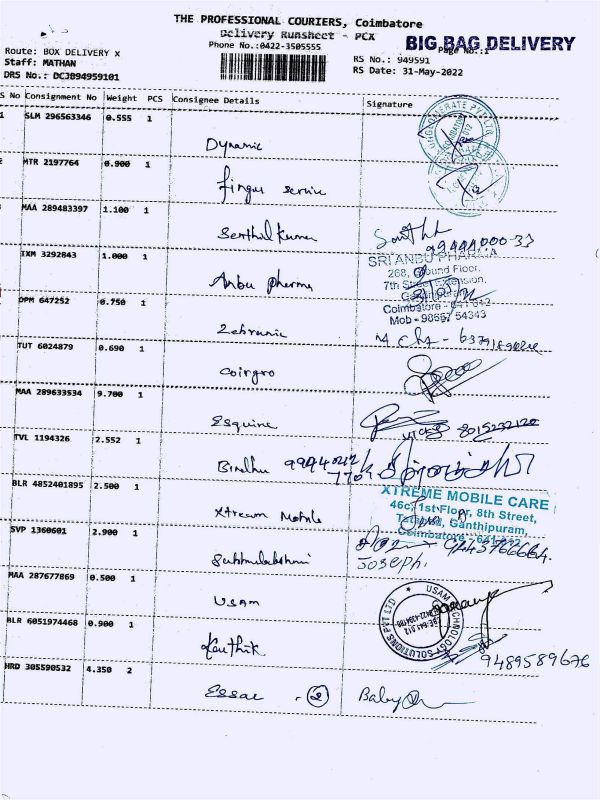 THE PROFESSIONAL COURIERS, Coimbatore
Delivery Runsheet - PCX
BIG BAG DELIVERY
Phone No.:0422-3505555
Page No.:1
Route: BOX DELIVERY X
Staff: MATHAN
DRS No.: DCJB94959101
RS No.: 949591
RS Date: 31-May-2022
S No Consignment No Weight PCS Consignee Details Signature
1 SLM 296563346 0.555 1
Dynamic
MTR 2197764 0.900 1
fingus service
MAA 289483397 1.100 1
Senthil Kumar
IXM 3292843 1.000 1
Anbu pharma
SRI ANBU PHARMA
268, Ground Floor,
7th Street Extension,
Coimbatore - 641 012
Mob - 98657 54343
OPM 647252 0.750 1
Zebronic
TUT 6024879 0.690 1
Coirgro
MAA 289633534 9.700 1
Esquire
8015232120
TVL 1194326 2.552 1
Bindhu
BLR 4852401895 2.500 1
Xtream Mobile
XTREME MOBILE CARE
46c, 1st Floor, 8th Street,
Tatabad, Ganthipuram,
Coimbatore - 641 012
SVP 1360601 2.900 1
Subbulakshmi
Joseph.
MAA 287677869 0.500 1
Usam
USAM TECHNOLOGY SOLUTIONS PVT LTD
BLR 6051974468 0.900 1
Karthik
9489589676
HRD 305590532 4.350 2
Essae - 2
Baby